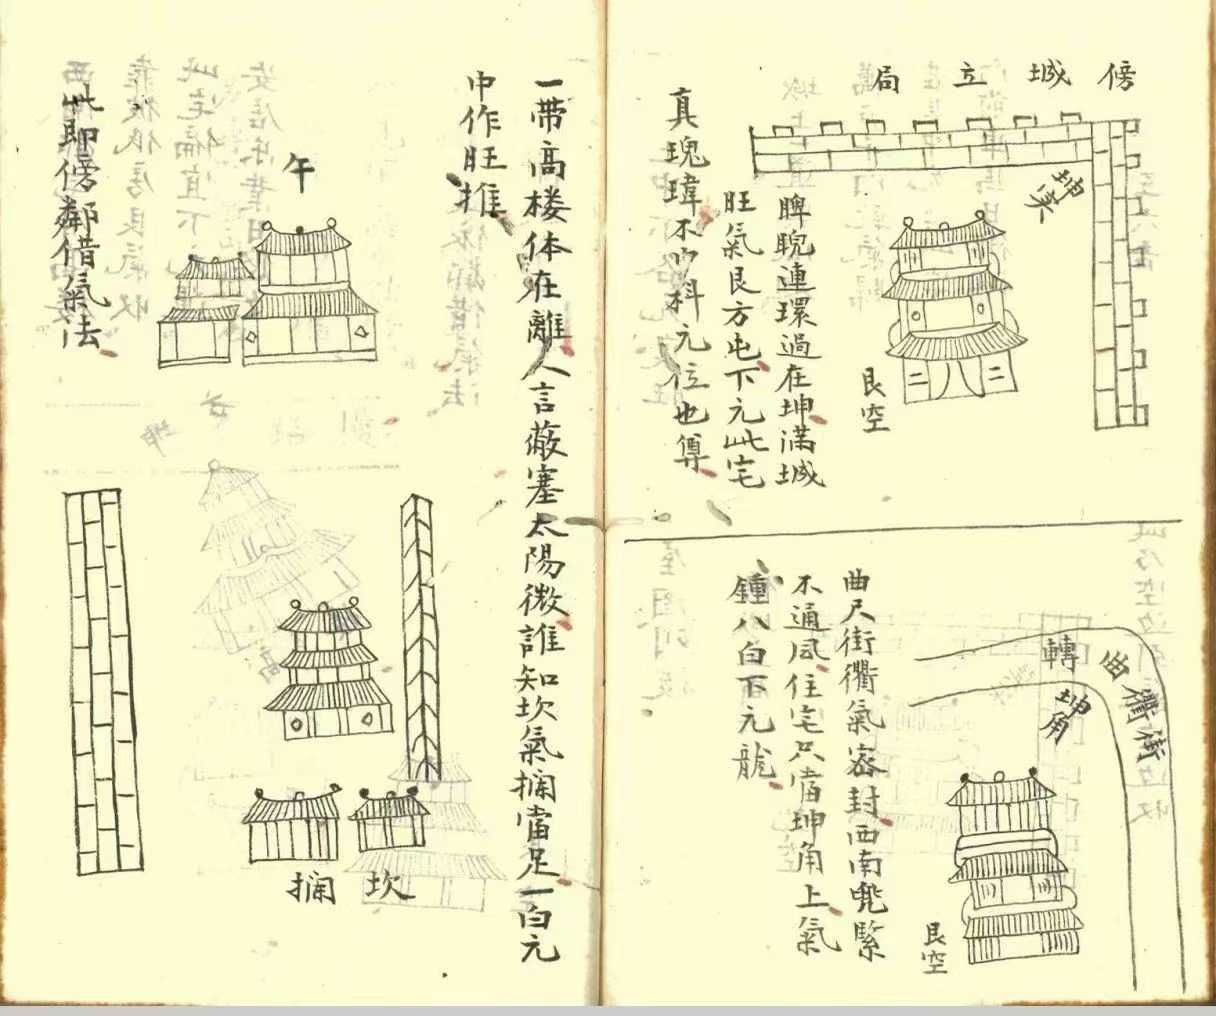 傍城立局
坤实
艮空
睥睨連環過在坤滿城
旺氣艮方屯下元此宅
真瑰瑋不吵科元位也尊
轉曲衢街
坤角
艮空
曲尺街衢氣密封西南兜緊
不通風住宅只當坤角上氣
鍾八白下元龍
一帶高楼体在離人言蔽塞太陽微誰知坎氣攔當足一白元
中作旺推
午
坎攔
此即傍鄰借氣法